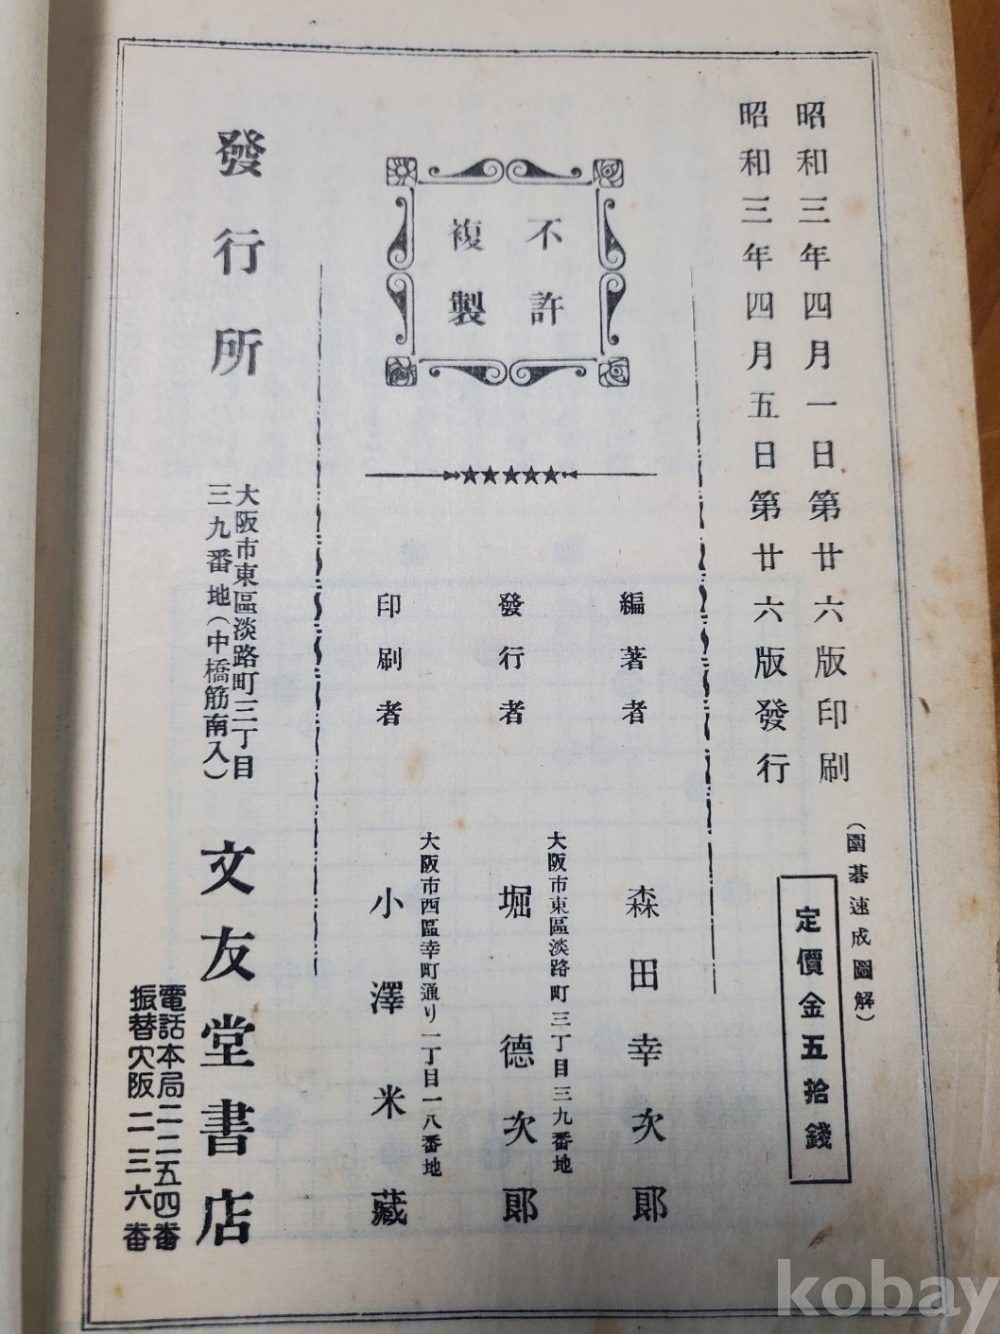 昭和三年四月一日第廿六版印刷
昭和三年四月五日第廿六版發行
(圍碁速成圖解)
定價金五拾錢
不許
複製
編著者 森田幸次郎
大阪市東區淡路町三丁目三九番地
發行者 堀德次郎
大阪市西區幸町通り一丁目一八番地
印刷者 小澤米藏
發行所
大阪市東區淡路町三丁目
三九番地(中橋筋南入)
文友堂書店
電話本局二二五四番
振替穴阪二三六番
kobay